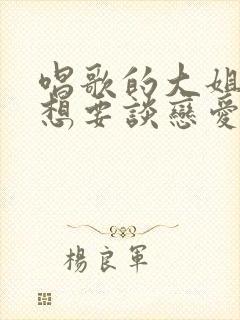 唱歌的大姐
想要談戀愛
楊良軍